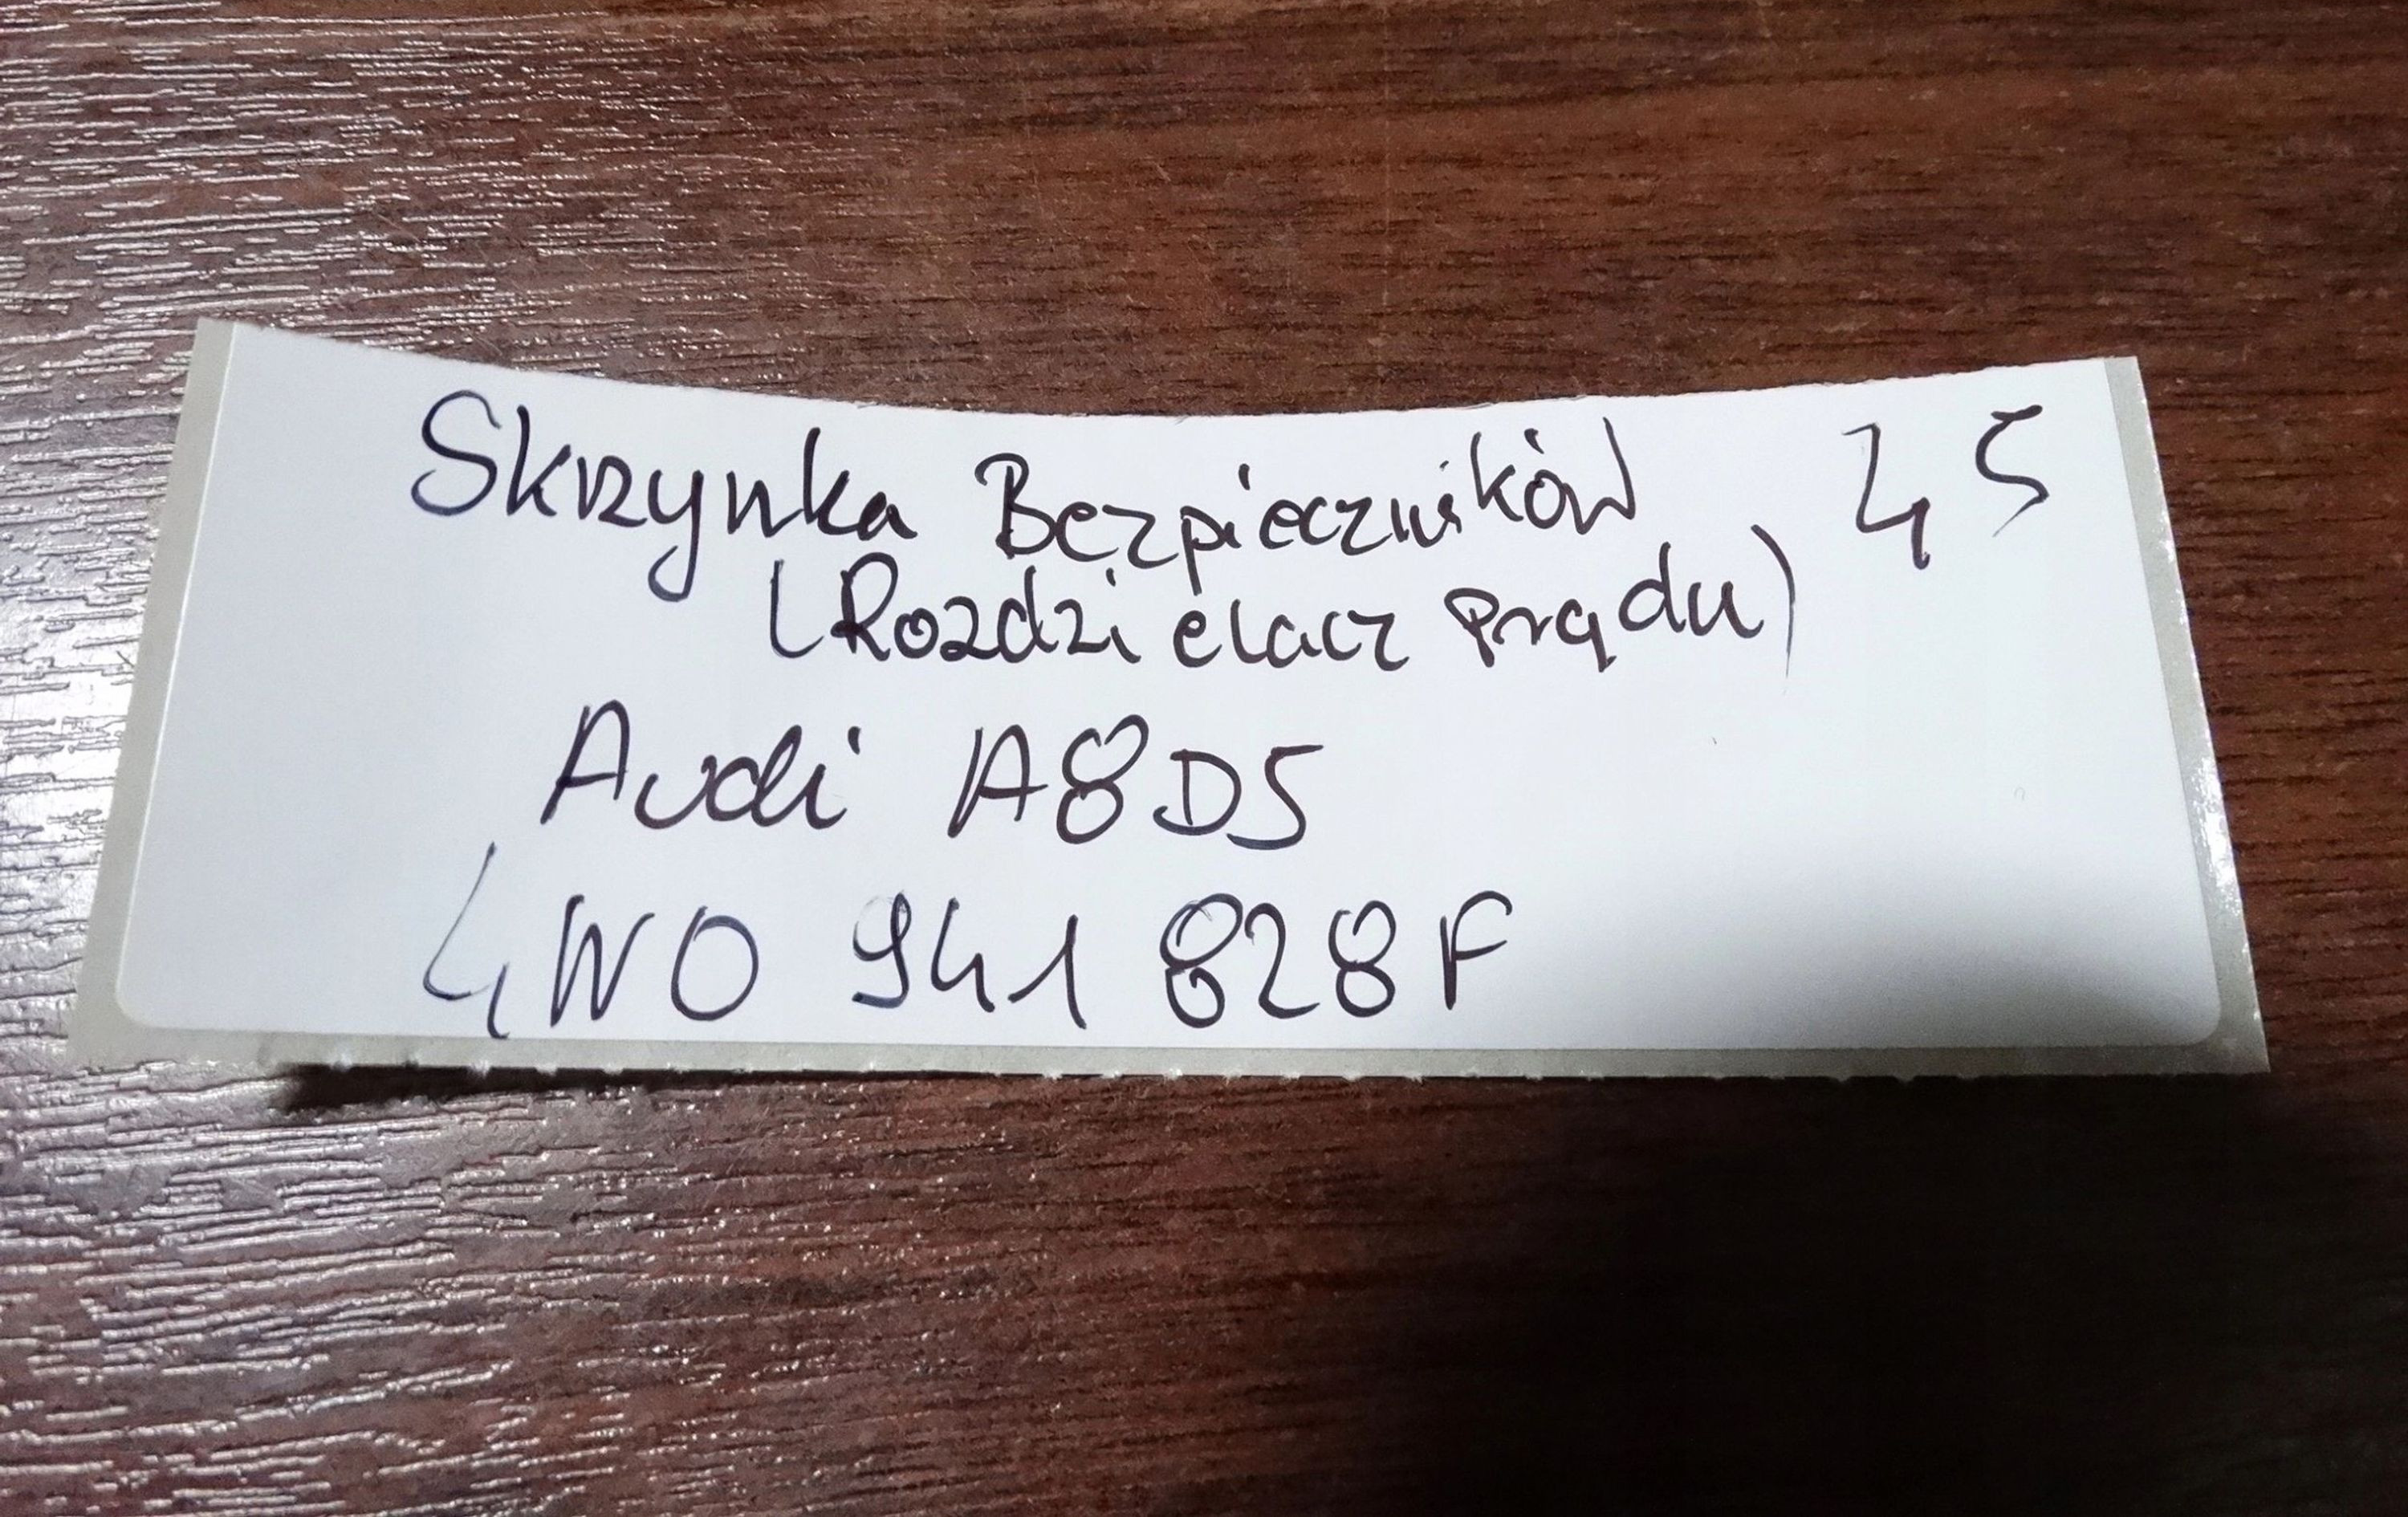 Skrzynka Bezpieczników 45
(Rozdzielacz prądu)
Audi A8D5
4W0 941 828F